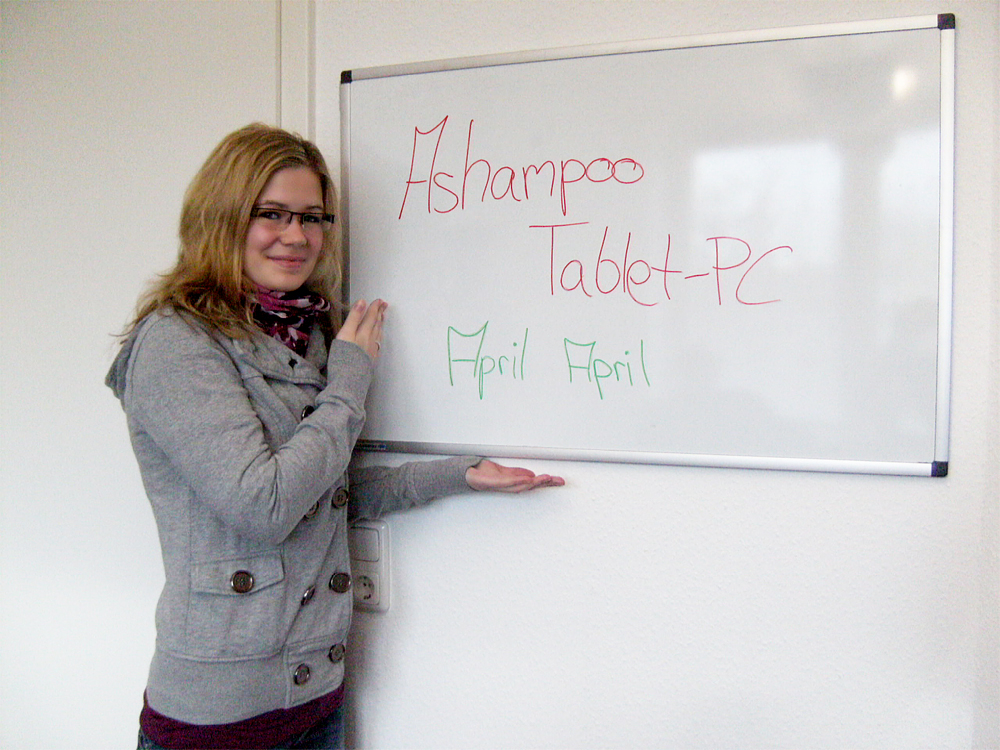 Ashampoo
Tablet-PC
April April